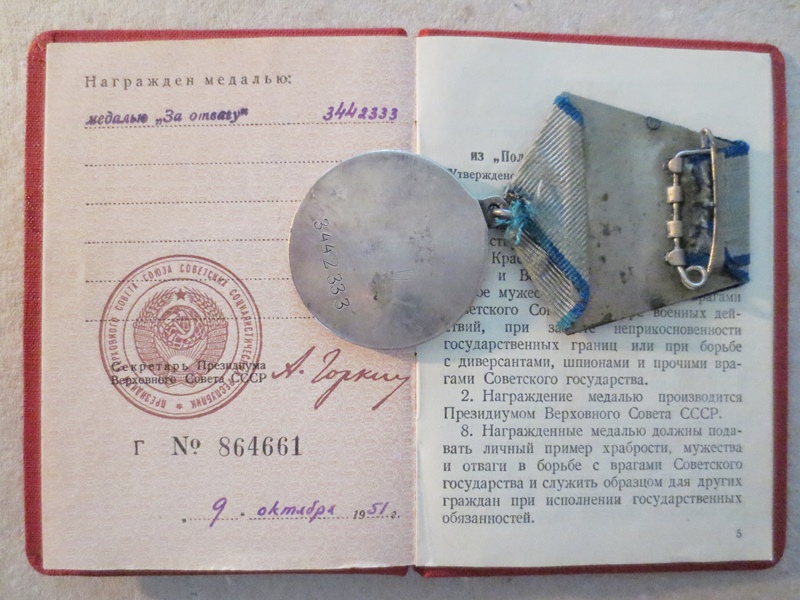 Награжден медалью:
медалью „За отвагу" 3442333
ПРЕЗИДИУМ ВЕРХОВНОГО СОВЕТА СОЮЗА СОВЕТСКИХ СОЦИАЛИСТИЧЕСКИХ РЕСПУБЛИК
Секретарь Президиума
Верховного Совета СССР А. Горкин
Г № 864661
„ 9 " октября 1951 г.
3442333
из
и
мужес врагами
военных дей-
ствий, при неприкосновенности
государственных границ или при борьбе
с диверсантами, шпионами и прочими вра-
гами Советского государства.
2. Награждение медалью производится
Президиумом Верховного Совета СССР.
8. Награжденные медалью должны пода-
вать личный пример храбрости, мужества
и отваги в борьбе с врагами Советского
государства и служить образцом для других
граждан при исполнении государственных
обязанностей.
5